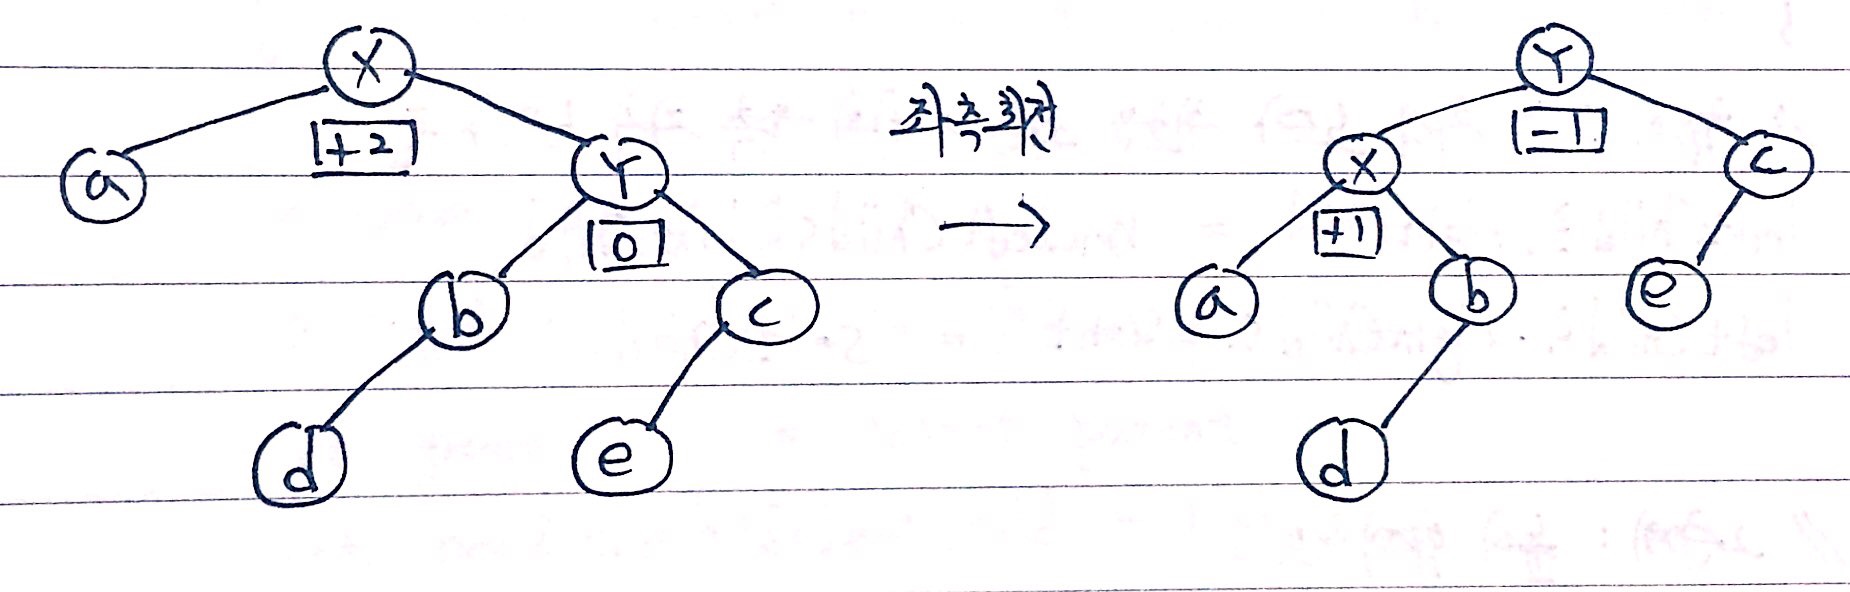 X
+2
a
Y
0
b
c
d
e
좌측회전
Y
-1
X
c
+1
a
b
e
d